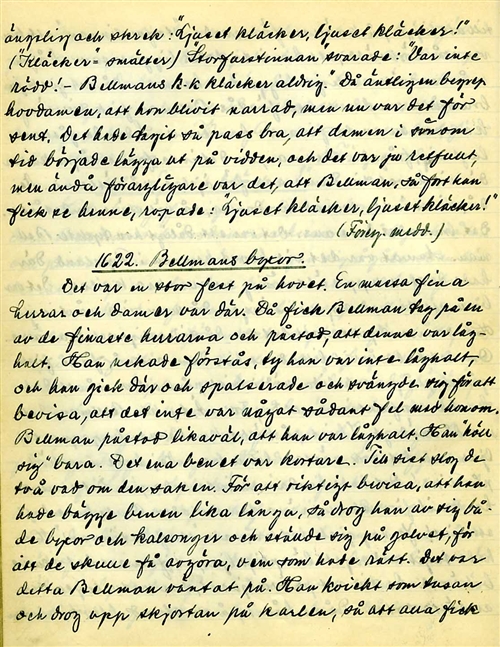 ängslig och skrek: "Ljuset kläcker, ljuset kläcker!"
("Kläcker" = smälter) Storfurstinnan svarade: "Var inte
rädd! - Bellmans k-k kläcker aldrig." Då äntligen begrep
hovdamen, att hon blivit narrad, men nu var det för
sent. Det hade tagit så pass bra, att damen i sinom
tid började lägga ut på vidden, och det var ju retfullt,
men ändå förargligare var det, att Bellman, så fort han
fick se henne, ropade: Ljuset kläcker, ljuset kläcker!"
(Föreg. medd.)
1622. Bellmans byxor.
Det var en stor fest på hovet. En massa fina
herrar och damer var där. Då fick Bellman tag på en
av de finaste herrarna och påstod, att denne var låg-
halt. Han nekade förstås, ty han var inte låghalt,
och han gick där och spatserade och svängde sig för att
bevisa, att det inte var något sådant fel med honom.
Bellman påstod likaväl, att han var låghalt. Han "höll
sig" bara. Det ena benet var kortare. Till sist slog de
två vad om den saken. För att riktigt bevisa, att han
hade bägge benen lika långa, så drog han av sig bå-
de byxor och kalsonger och ställde sig på golvet, för
att de skulle få avgöra, vem som hade rätt. Det var
detta Bellman väntat på. Han kvickt som tusan
och drog upp skjortan på karlen, så att alla fick